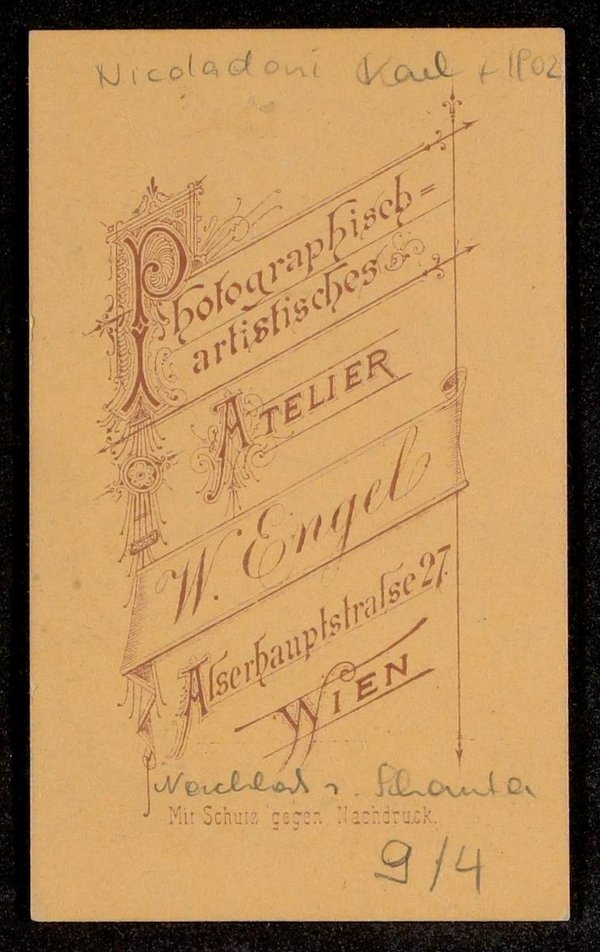 Nicoladoni Karl + 1902
Photographisch=
artistisches
ATELIER
W. Engel
Alserhauptstraſse 27.
WIEN
Nachlass v. Schauta
Mit Schutz gegen Nachdruck.
9/4